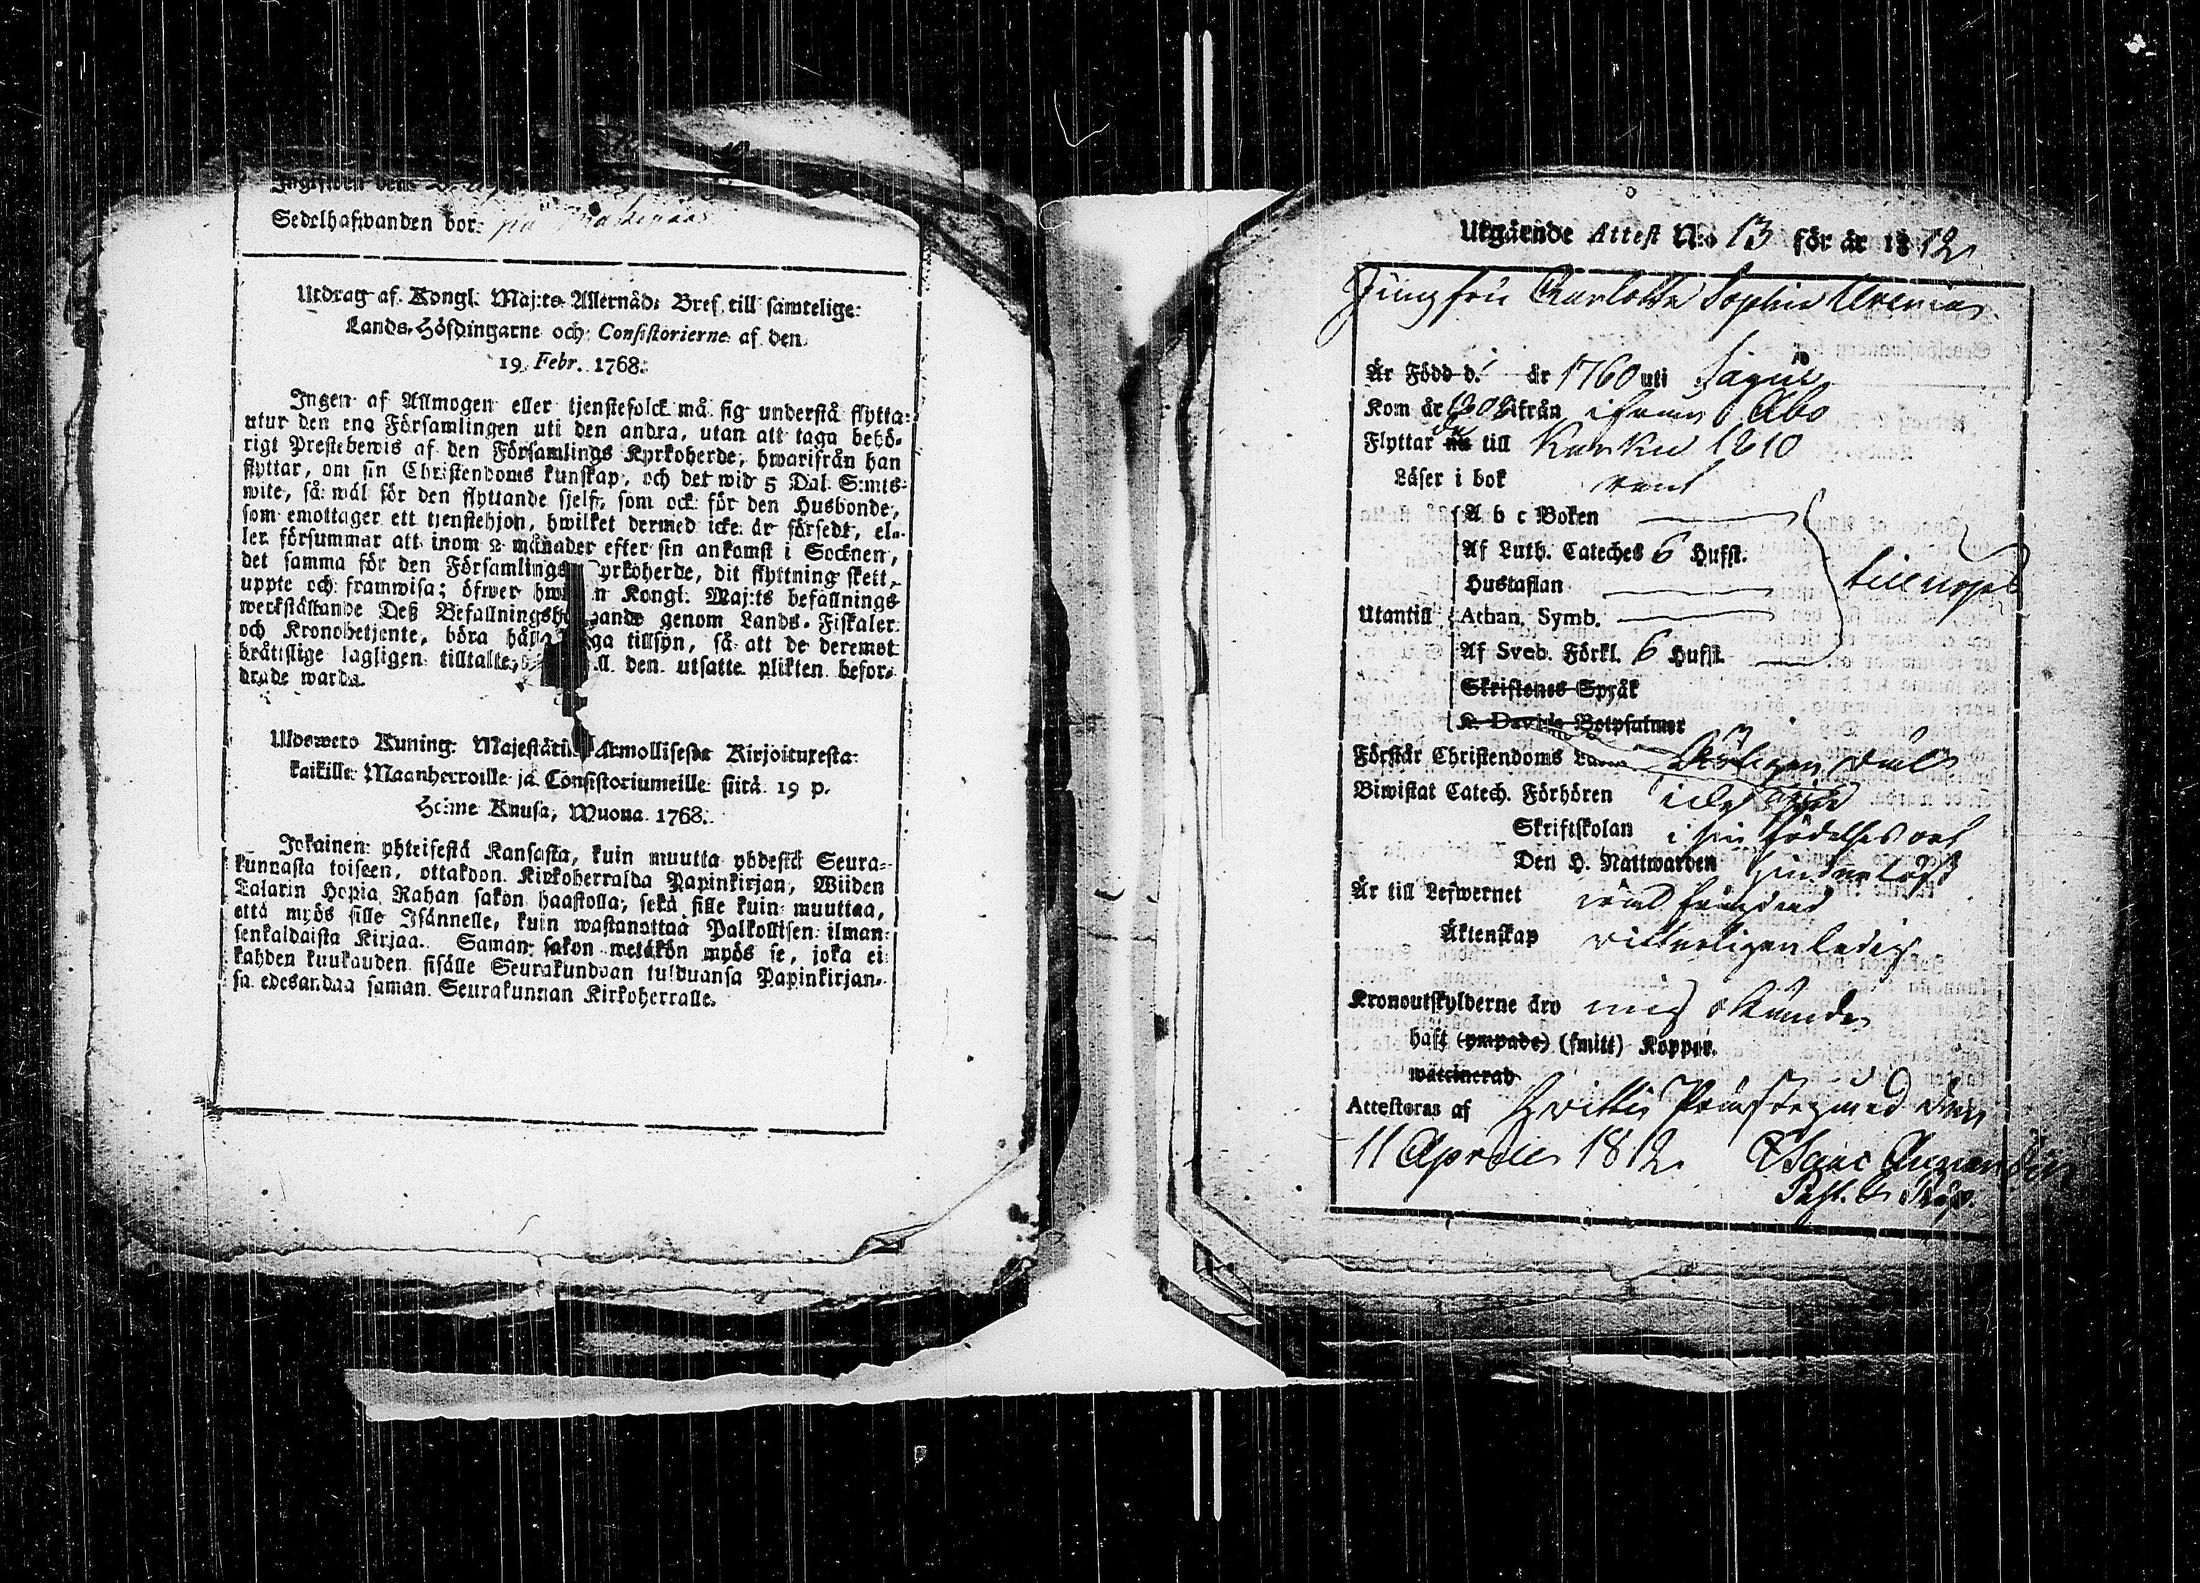 Sedelhafwanden bor: på
Utdrag af Kongl. Maj:ts Allernåd: Bref till samtelige
Lands-Höfdingarne och Consistorierne af den
19 Febr. 1768.
Ingen af Allmogen eller tjenstefolck må sig understå flytta
utur den ena Församlingen uti den andra, utan att taga behö-
rigt Prestebewis af den Församlings Kyrkoherde, hwarifrån han
flyttar, om sin Christendoms kunskap, och det wid 5 Dal. S:mts
wite, så wäl för den flyttande sjelf, som ock för den Husbonde,
som emottager ett tjenstehjon, hwilket dermed icke är försedt, el-
ler försummar att inom 2 månader efter sin ankomst i Socknen,
det samma för den Församlings yrkoherde, dit flyttning skett,
uppte och framwisa; öfwer hw n Kongl. Maj:ts befallnings
werkställande Deß Befallningsh ande genom Lands-Fiskaler
och Kronobetjente, böra hå ga tillsyn, så att de deremot
bråttslige lagligen tilltalte, ll den utsatte plikten befor-
drade warda.
Uloswero Kuning. Majestäti Armollisesta Kirjoituxesta
kaikille Maanherroille ja Consistoriumeille siitä 19 p.
Helme Kuusa, Wuona 1768.
Jokainen yhteisestä Kansasta, kuin muutta yhdestä Seura-
kunnasta toiseen, ottakoon Kirkoherralda Papinkirjan, Wiiden
Talarin Hopia Rahan sakon haastolla, sekä sille kuin muuttaa,
että myös sille Isännelle, kuin wastanottaa Palkollisen ilman
senkaldaista Kirjaa. Saman sakon wetäkön myös se, joka ei
kahden kuukauden sisälle Seurakundoan tulduansa Papinkirjan-
sa edesandaa saman Seurakunnan Kirkoherralle.
Utgående Attest N:o 13 för år 1812
Jungfru Charlotta Sophia
Är Född d. år 1760 uti Sagu
Kom år ifrån Åbo
Flyttar nu till Karku 1810
Läser i bok rent
A b c Boken
Af Luth. Cateches 6 Hufst.
Hustaflan
Utantill Athan. Symb.
Af Sveb. Förkl. 6 Hufst.
Skriftenes Språk
K. Davids Botpsalmer
Förstår Christendoms
Biwistat Catech. Förhören
Skriftskolan i sin födelse ort
Den H. Nattwarden
Är till Lefwernet wäl
Äktenskap ledig
Kronoutskylderne äro mig okunde
haft (ympade) (smitt) Koppor.
waccinerad
Attesteras af
11 Aprill 1812. Isaac
Past. & Præp.